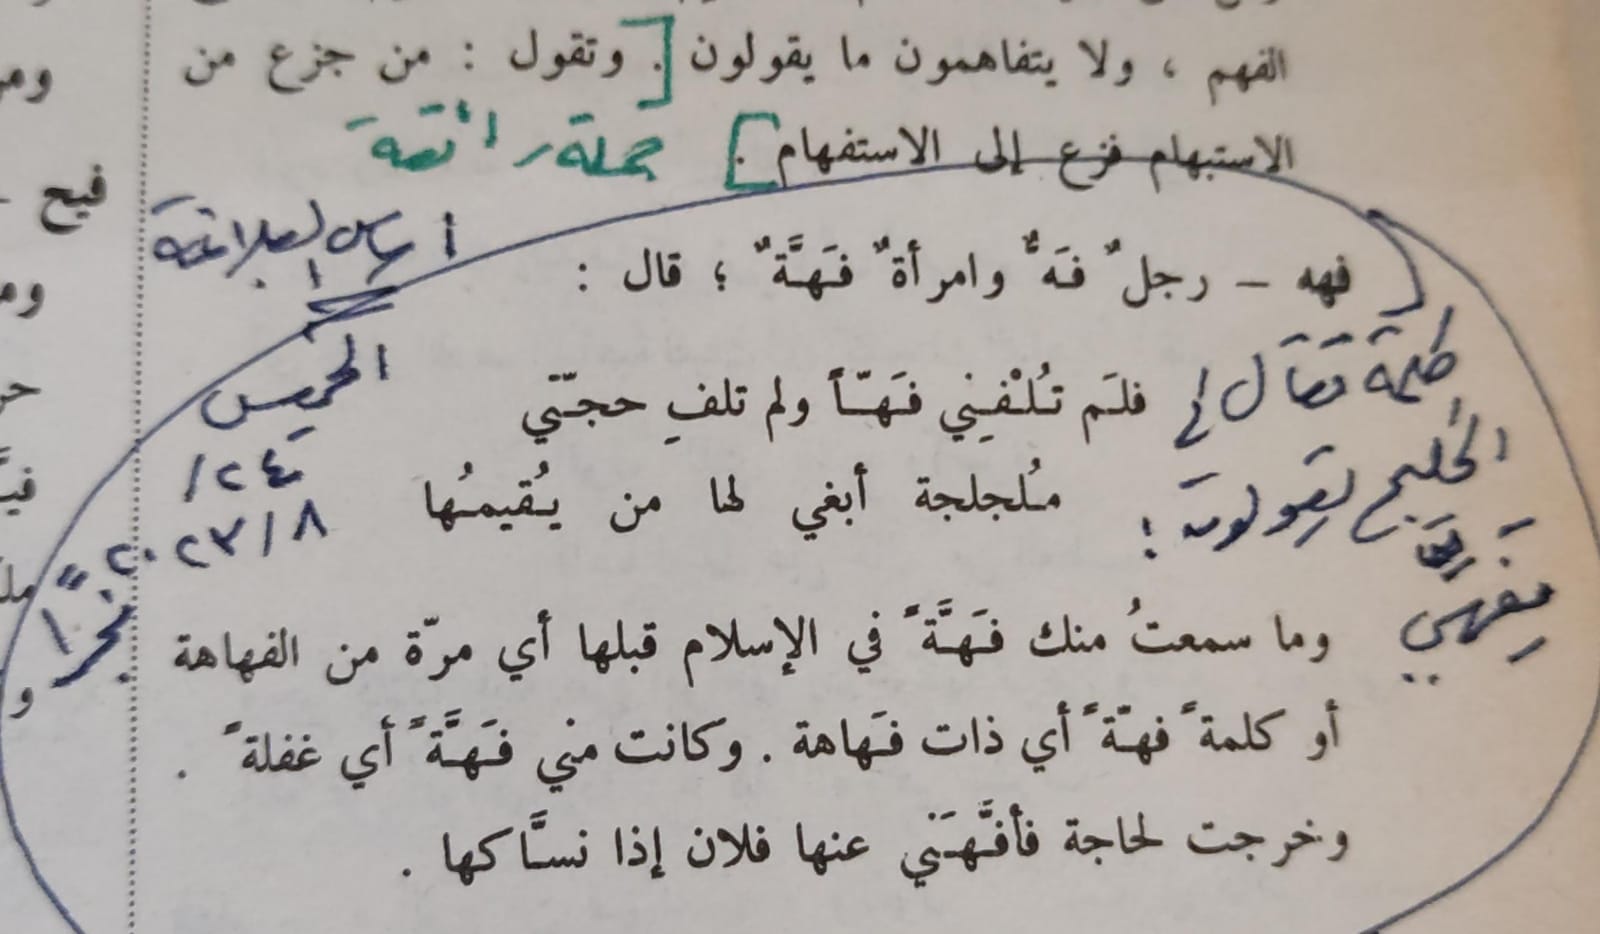 الفهم ، ولا يتفاهمون ما يقولون . وتقول : من جزع من
الاستبهام فزع إلى الاستفهام .
جملة رائعة
أساس البلاغة
فهه – رجلٌ فَهٌّ وامرأةٌ فَهَّةٌ ؛ قال :
الخميس
٢٤/
٨/٢٠٢٣
فجرًا
كلمة تقال في
الخليج يقولون :
يفهي
فلَم تُلْفِني فَهّاً ولم تلفِ حجّتي
مُلجلجة أبغي لها من يُقيمُها
وما سمعتُ منك فَهَّةً في الإسلام قبلها أي مرّة من الفهاهة
أو كلمةً فهّةً أي ذات فَهاهة . وكانت مني فَهَّةً أي غفلةً .
وخرجت لحاجة فأفَهَّني عنها فلان إذا نسَّاكها .
فيح